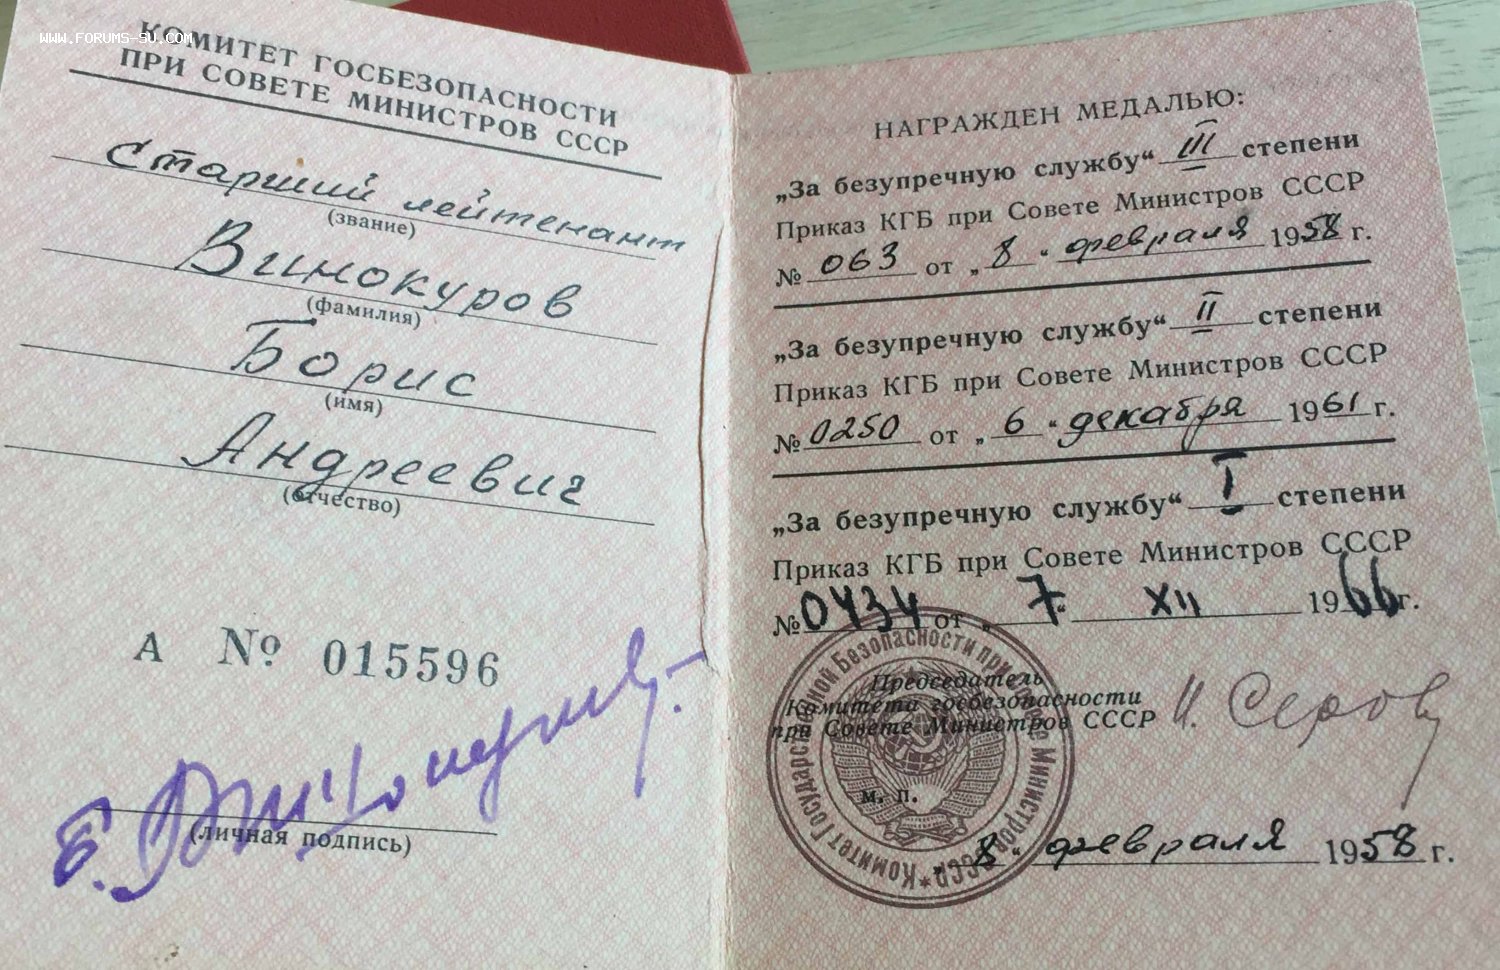 WWW.FORUMS-SU.COM
КОМИТЕТ ГОСБЕЗОПАСНОСТИ
ПРИ СОВЕТЕ МИНИСТРОВ СССР
Старший лейтенант
(звание)
Винокуров
(фамилия)
Борис
(имя)
Андреевич
(отчество)
А № 015596
Б. Винокуров.
(личная подпись)
НАГРАЖДЕН МЕДАЛЬЮ:
„За безупречную службу“ III степени
Приказ КГБ при Совете Министров СССР
№ 063 от „8“ февраля 1958 г.
„За безупречную службу“ II степени
Приказ КГБ при Совете Министров СССР
№ 0250 от „6“ декабря 1961 г.
„За безупречную службу“ I степени
Приказ КГБ при Совете Министров СССР
№ 0434 от „7“ XII 1966 г.
Председатель
Комитета госбезопасности
при Совете Министров СССР И. Серов
М. П.
Комитет Государственной Безопасности при Совете Министров СССР
„8“ февраля 1958 г.